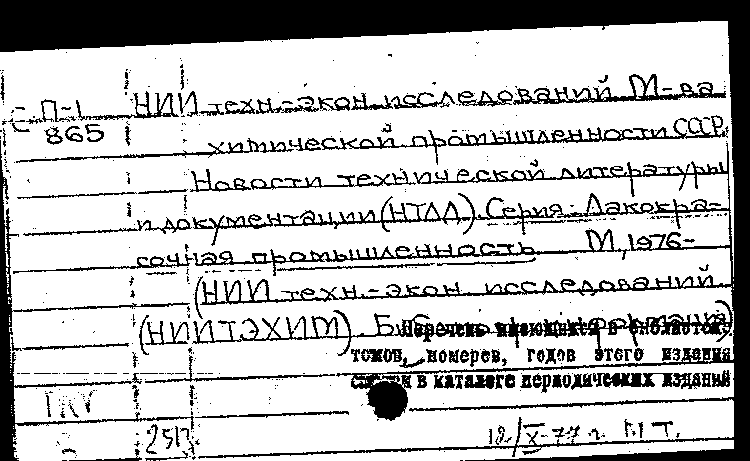 С П-1 НИИ техн.-экон. исследований М-ва
865
химической промышленности СССР.
Новости технической литературы
и документации (НТЛД). Серия: Лакокра-
сочная промышленность М., 1976-
(НИИ техн.-экон. исследований
(НИИТЭХИМ). информация)
Перечень имеющихся в библиотеке
томов, номеров, годов этого издания
смотри в каталоге периодических изданий
2513
12/X-77 г. М Т.